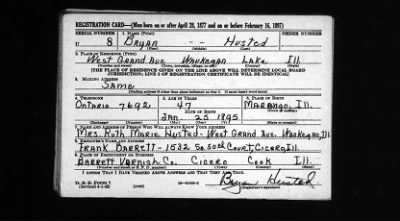 REGISTRATION CARD—(Men born on or after April 28, 1877 and on or before February 16, 1897)
SERIAL NUMBER 1. NAME (Print) ORDER NUMBER
U 8 BRYAN -- HUSTED
(First) (Middle) (Last)
2. PLACE OF RESIDENCE (Print)
WEST GRAND AVE WAUKEGAN LAKE ILL.
(Number and street) (Town, township, village, or city) (County) (State)
[THE PLACE OF RESIDENCE GIVEN ON THE LINE ABOVE WILL DETERMINE LOCAL BOARD
JURISDICTION; LINE 2 OF REGISTRATION CERTIFICATE WILL BE IDENTICAL]
3. MAILING ADDRESS
SAME
4. TELEPHONE 5. AGE IN YEARS 6. PLACE OF BIRTH
ONTARIO 7692 47 MARENGO, ILL.
DATE OF BIRTH
JAN 25 1895
7. NAME AND ADDRESS OF PERSON WHO WILL ALWAYS KNOW YOUR ADDRESS
MRS. RUTH MARIE HUSTED - WEST GRAND AVE. WAUKEGAN, ILL
8. EMPLOYER'S NAME AND ADDRESS
FRANK BARRETT - 1532 SO. 50TH COURT, CICERO ILL.
9. PLACE OF EMPLOYMENT OR BUSINESS
BARRETT VARNISH CO. CICERO COOK ILL.
(Number and street or R. F. D. number) (Town) (County) (State)
I AFFIRM THAT I HAVE VERIFIED ABOVE ANSWERS AND THAT THEY ARE TRUE.
D. S. S. Form 1
Bryan Husted